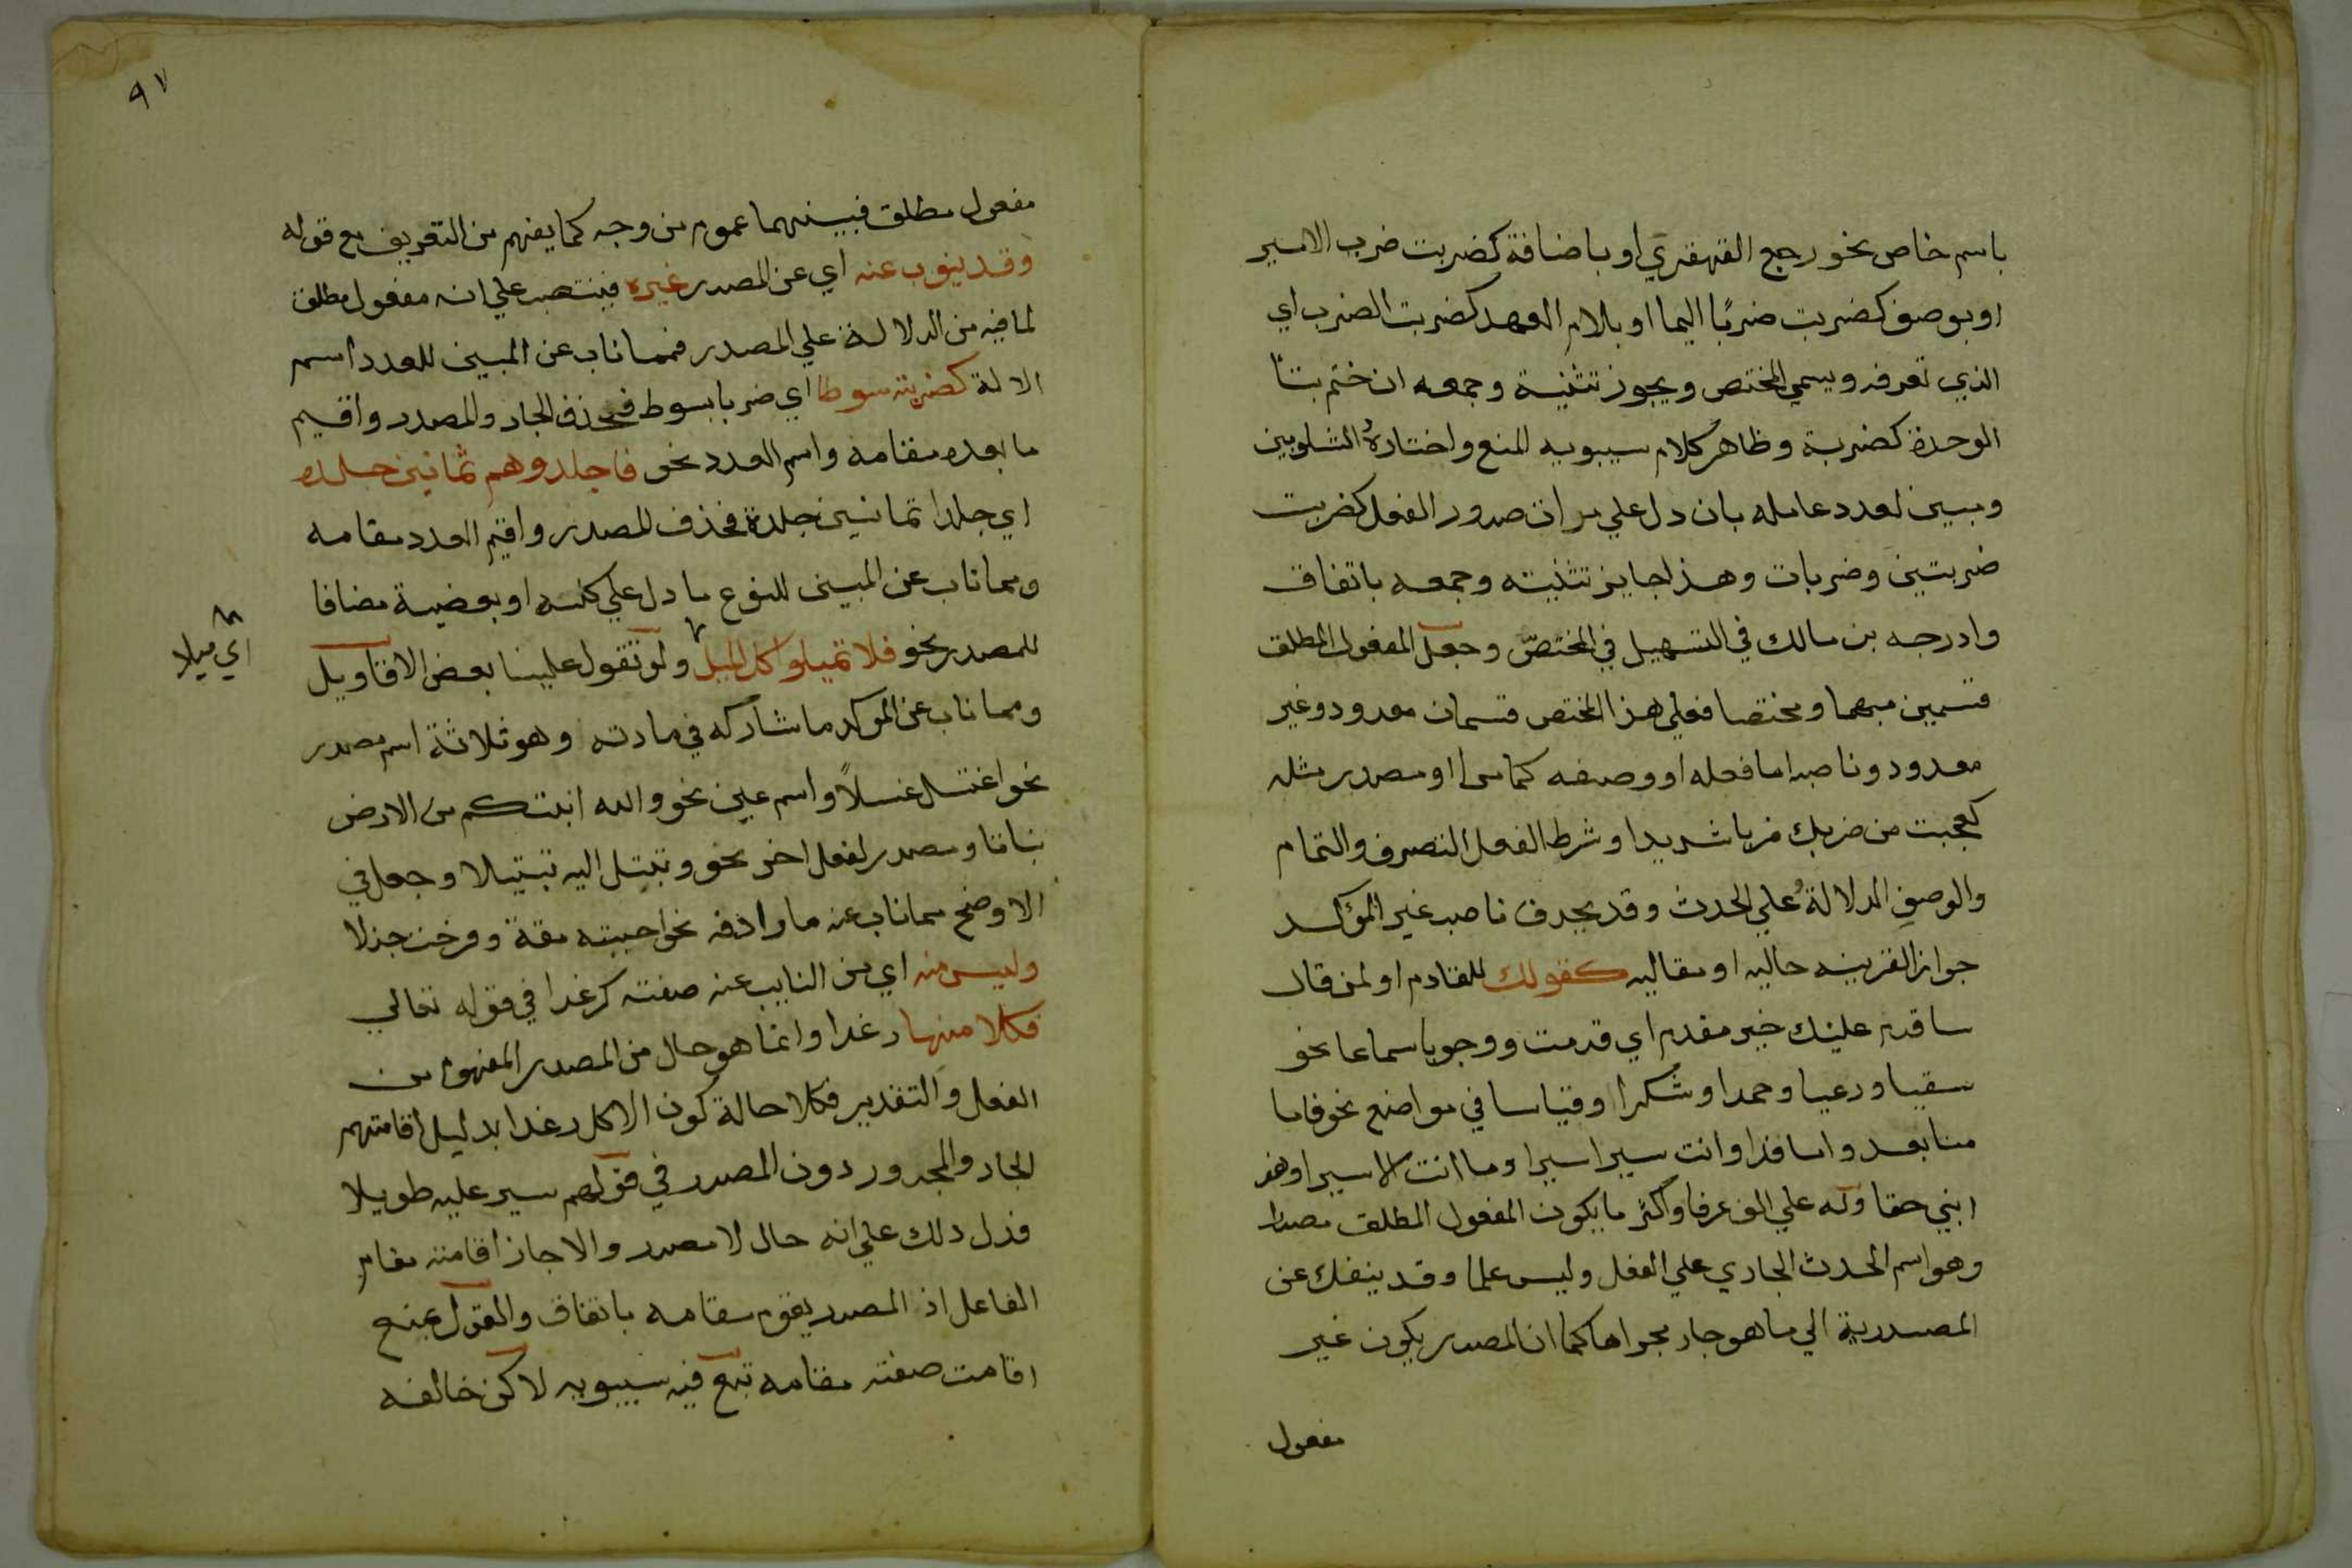 باسم خاص نحو رجع القهقري او باضافة كضربت ضرب الامير
او بوصف كضربت ضربًا اليما او بلام العهد كضربت الضرب اي
الذي تعرفه ويسمي المختص ويجوز تثنية وجمعه ان ختم بتا
الوحدة كضربة وظاهر كلام سيبويه المنع واختاره الشلوبين
ومبين لعدد عامله بان دل علي مرات صدور الفعل كضربت
ضربتين وضربات وهذا جايز تثنيته وجمعه باتفاق
وادرجه بن مالك في التسهيل في المختصّ وجعل المفعول المطلق
قسمين مبهما ومختصا فعلي هذا المختص قسمان معدود وغير
معدود وناصبه اما فعله او وصفه كما مر او مصدر مثله
كعجبت من ضربك ضربا شديدا وشرط الفعل التصرف والتمام
والوصفِ الدلالةُ علي الحدث وقد يحذف ناصب غير المؤكد
جواز القرينه حاليه او مقاليه كقولك للقادم او لمن قال
ساقدم عليك خير مقدم اي قدمت ووجوبا سماعا نحو
سقيا ورعيا وحمدا وشكرا وقياسا في مواضع نحو فاما
منا بعد واما فدا وانت سيرا سيرا وما انت الا سيرا وهو
ابني حقا وله علي الف عرفا واكثر ما يكون المفعول المطلق مصدرا
وهو اسم الحدث الجاري علي الفعل وليس علما وقد ينفك عن
المصدرية الي ما هو جار مجراها كما ان المصدر يكون غير
مفعول
٩٧
مفعول مطلق فبينهما عموم من وجه كما يفهم من التعريف مع قوله
وقد ينوب عنه اي عن المصدر غيره فينتصب علي انه مفعول مطلق
لما فيه من الدلالة علي المصدر فمما ناب عن المبين للعدد اسم
الالة كضربته سوطا اي ضربا بسوط فحذف الجار والمصدر واقيم
ما بعده مقامه واسم العدد نحو فاجلدوهم ثمانين جلده
اي جلدا ثمانين جلدة فحذف المصدر واقيم العدد مقامه
ومما ناب عن المبين للنوع ما دل علي كليه او بعضية مضافا
للمصدر نحو فلا تميلوا كل الميل ولو تقول علينا بعض الاقاويل
اي ميلا
ومما ناب عن الموكد ما شاركه في مادته وهو ثلاثة اسم مصدر
نحو اغتسل غسلاً واسم عين نحو والله انبتكم من الارض
نباتا ومصدر لفعل اخر نحو وتبتل اليه تبتيلا وجعل في
الاوضح مما ناب عنه ما رادفه نحو احببته مقة وفرحت جذلا
وليس منه اي من النايب عنه صفته كرغدا في قوله تعالي
فكلا منها رغدا وانما هو حال من المصدر المفهوم من
الفعل والتقدير فكلا حالة كون الاكل رغدا بدليل اقامتهم
الجار والمجرور دون المصدر في قولهم سير عليه طويلا
فدل دلك علي انه حال لا مصدر والا جاز اقامته مقام
الفاعل اذ المصدر يقوم مقامه باتفاق والقول بمنع
اقامت صفته مقامه تبع فيه سيبويه لاكن خالفه